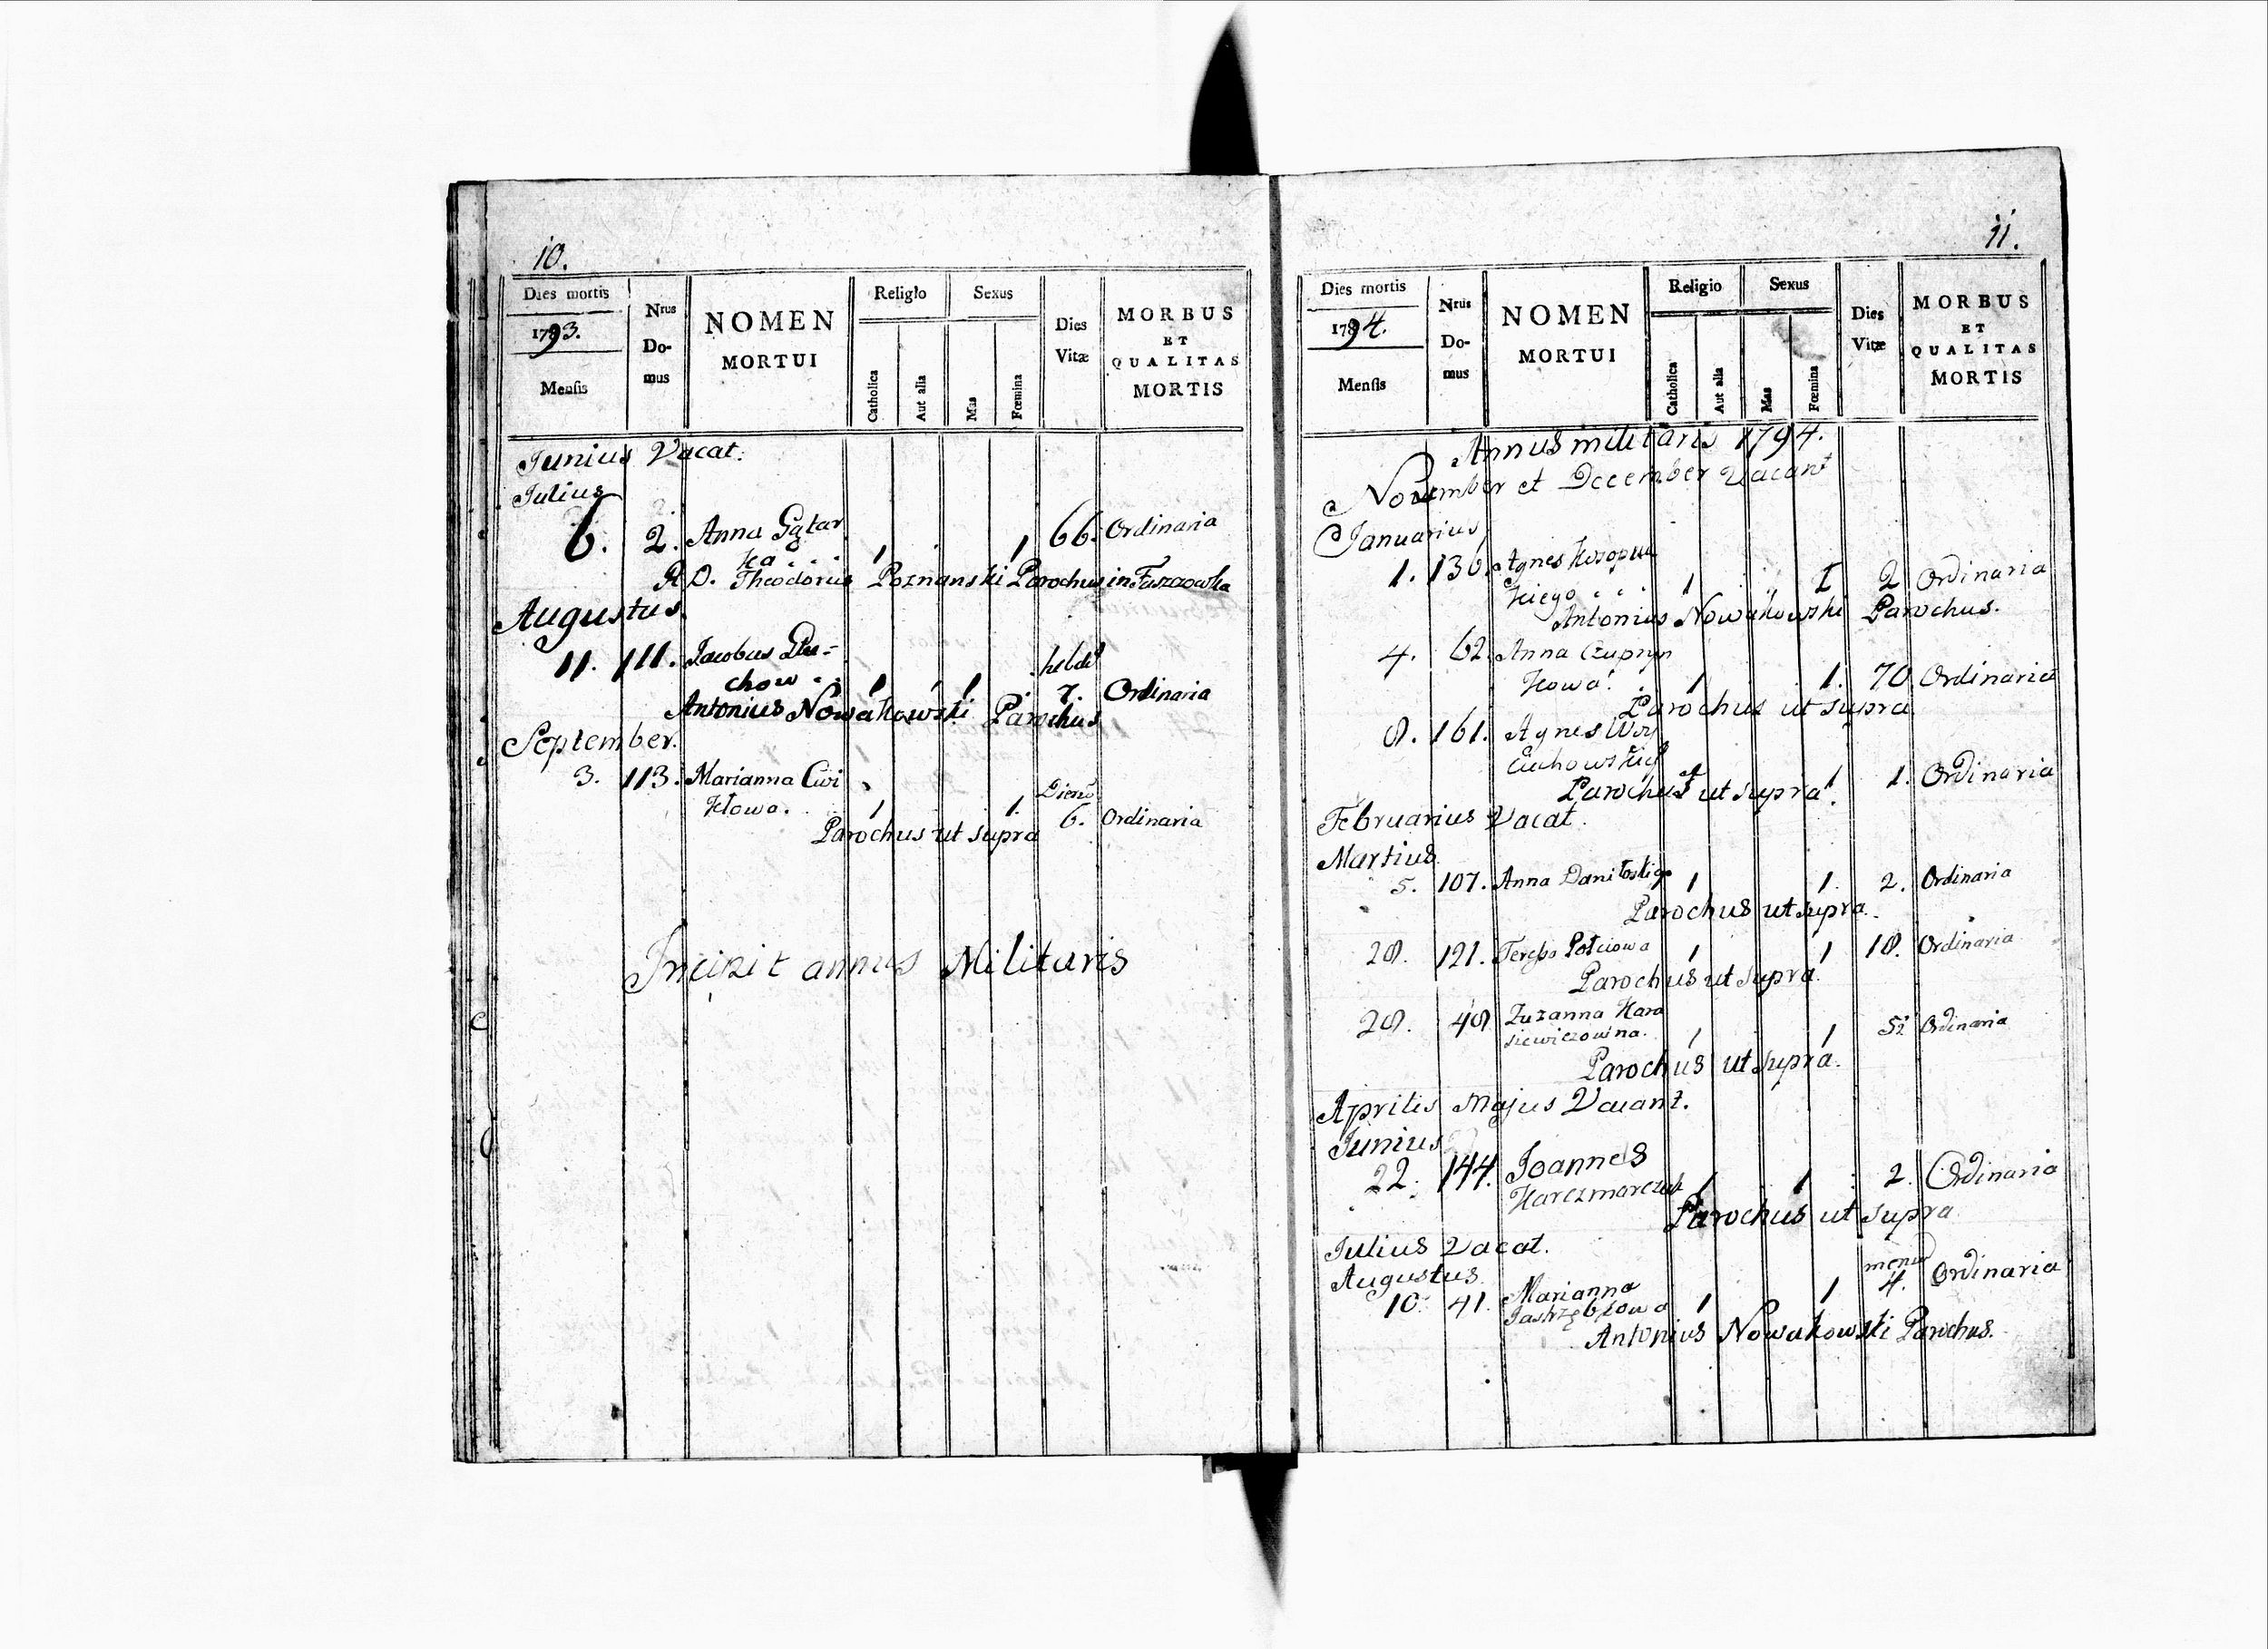 10.
Dies mortis
1793.
Mensis
Nrus
Do-
mus
NOMEN
MORTUI
Religio
Catholica
Aut alia
Sexus
Mas
Fœmina
Dies
Vitæ
MORBUS
ET
QUALITAS
MORTIS
Junius Vacat.
Julius
6. 2. Anna 1 1 66. Ordinaria
R. D. Theodorus Poznanski Parochus in Tuszowka
Augustus
11. 111. Jacobus Du=
chow 1 1 7. Ordinaria
Antonius Nowakowski Parochus
September.
3. 113. Marianna Cwi
kłowa. 1 1. 6. Ordinaria
Parochus ut supra
Incipit annus Militaris
11.
Dies mortis
1794.
Mensis
Nrus
Do-
mus
NOMEN
MORTUI
Religio
Catholica
Aut alia
Sexus
Mas
Fœmina
Dies
Vitæ
MORBUS
ET
QUALITAS
MORTIS
Annus militaris 1794.
November et December Vacant
Januarius
1. 136. Agnes
1 1 2 Ordinaria
Antonius Nowakowski Parochus.
4. 62. Anna Czupryn
kowa. 1 1. 70 Ordinaria
Parochus ut supra
8. 161. Agnes Woy
ciechowskiey 1 1 1. Ordinaria
Parochus ut supra
Februarius Vacat.
Martius
5. 107. Anna Daniłoskiego 1 1. 2. Ordinaria
Parochus ut supra.
28. 121. Teresa Połciowa 1 1 18. Ordinaria
Parochus ut supra.
28. 48 Zuzanna Hara
siewiczowna. 1 1 52 Ordinaria
Parochus ut supra.
Aprilis Majus Vacant.
Junius
22. 144. Joannes
Karczmarczuk 1 1 2. Ordinaria
Parochus ut supra
Julius Vacat.
Augustus
10. 41. Marianna 1 1 4. Ordinaria
Jastrzębiowa
Antonius Nowakowski Parochus.